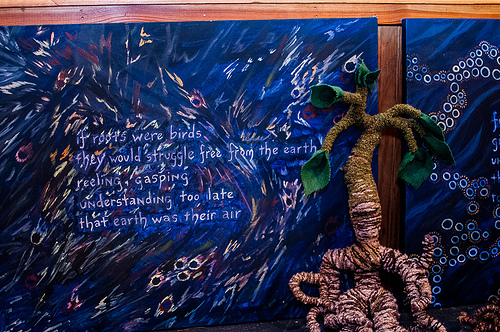 if roots were birds
they would struggle free from the earth
reeling, gasping
understanding too late
that earth was their air